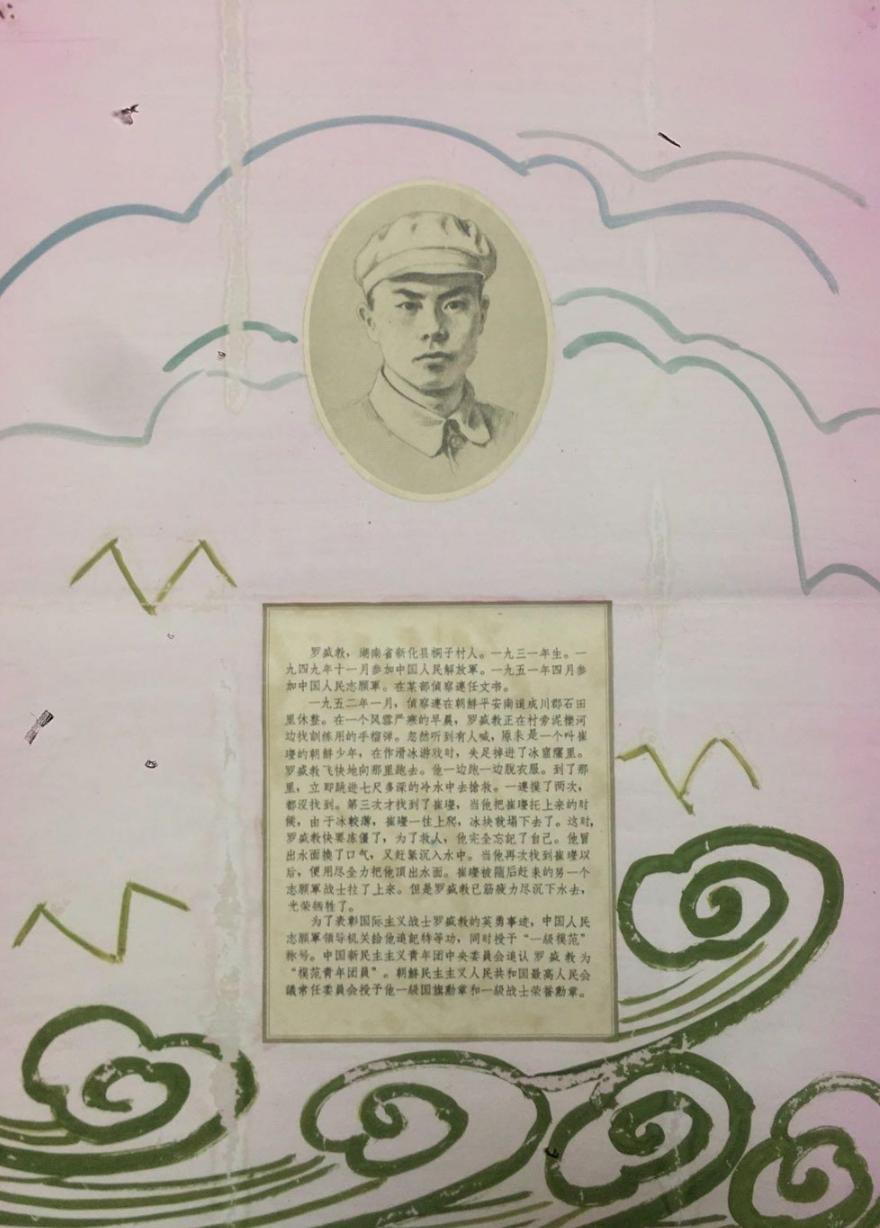 罗盛教，湖南省新化县桐子村人。一九三一年生。一
九四九年十一月参加中国人民解放軍。一九五一年四月参
加中国人民志願軍。在某部偵察連任文书。
一九五二年一月，偵察連在朝鮮平安南道成川郡石田
里休整。在一个风雪严寒的早晨，罗盛教正在村旁泥櫟河
边找訓练用的手榴弹。忽然听到有人喊，原来是一个叫崔
瑩的朝鮮少年，在作滑冰游戏时，失足掉进了冰窟窿里。
罗盛教飞快地向那里跑去。他一边跑一边脫衣服。到了那
里，立即跳进七尺多深的冷水中去搶救。一連摸了两次，
都沒找到。第三次才找到了崔瑩，当他把崔瑩托上来的时
候，由于冰較薄，崔瑩一往上爬，冰块就塌下去了。这时，
罗盛教快要冻僵了，为了救人，他完全忘記了自己。他冒
出水面換了口气，又赶紧沉入水中。当他再次找到崔瑩以
后，便用尽全力把他頂出水面。崔瑩被随后赶来的另一个
志願軍战士拉了上来。但是罗盛教已筋疲力尽沉下水去，
光荣牺牲了。
为了表彰国际主义战士罗盛教的英勇事迹，中国人民
志願軍領导机关给他追記特等功，同时授于“一級模范”
称号。中国新民主主义青年团中央委員会追认罗盛教为
“模范青年团員”。朝鮮民主主义人民共和国最高人民会
議常任委員会授予他一級国旗勳章和一級战士荣誉勳章。